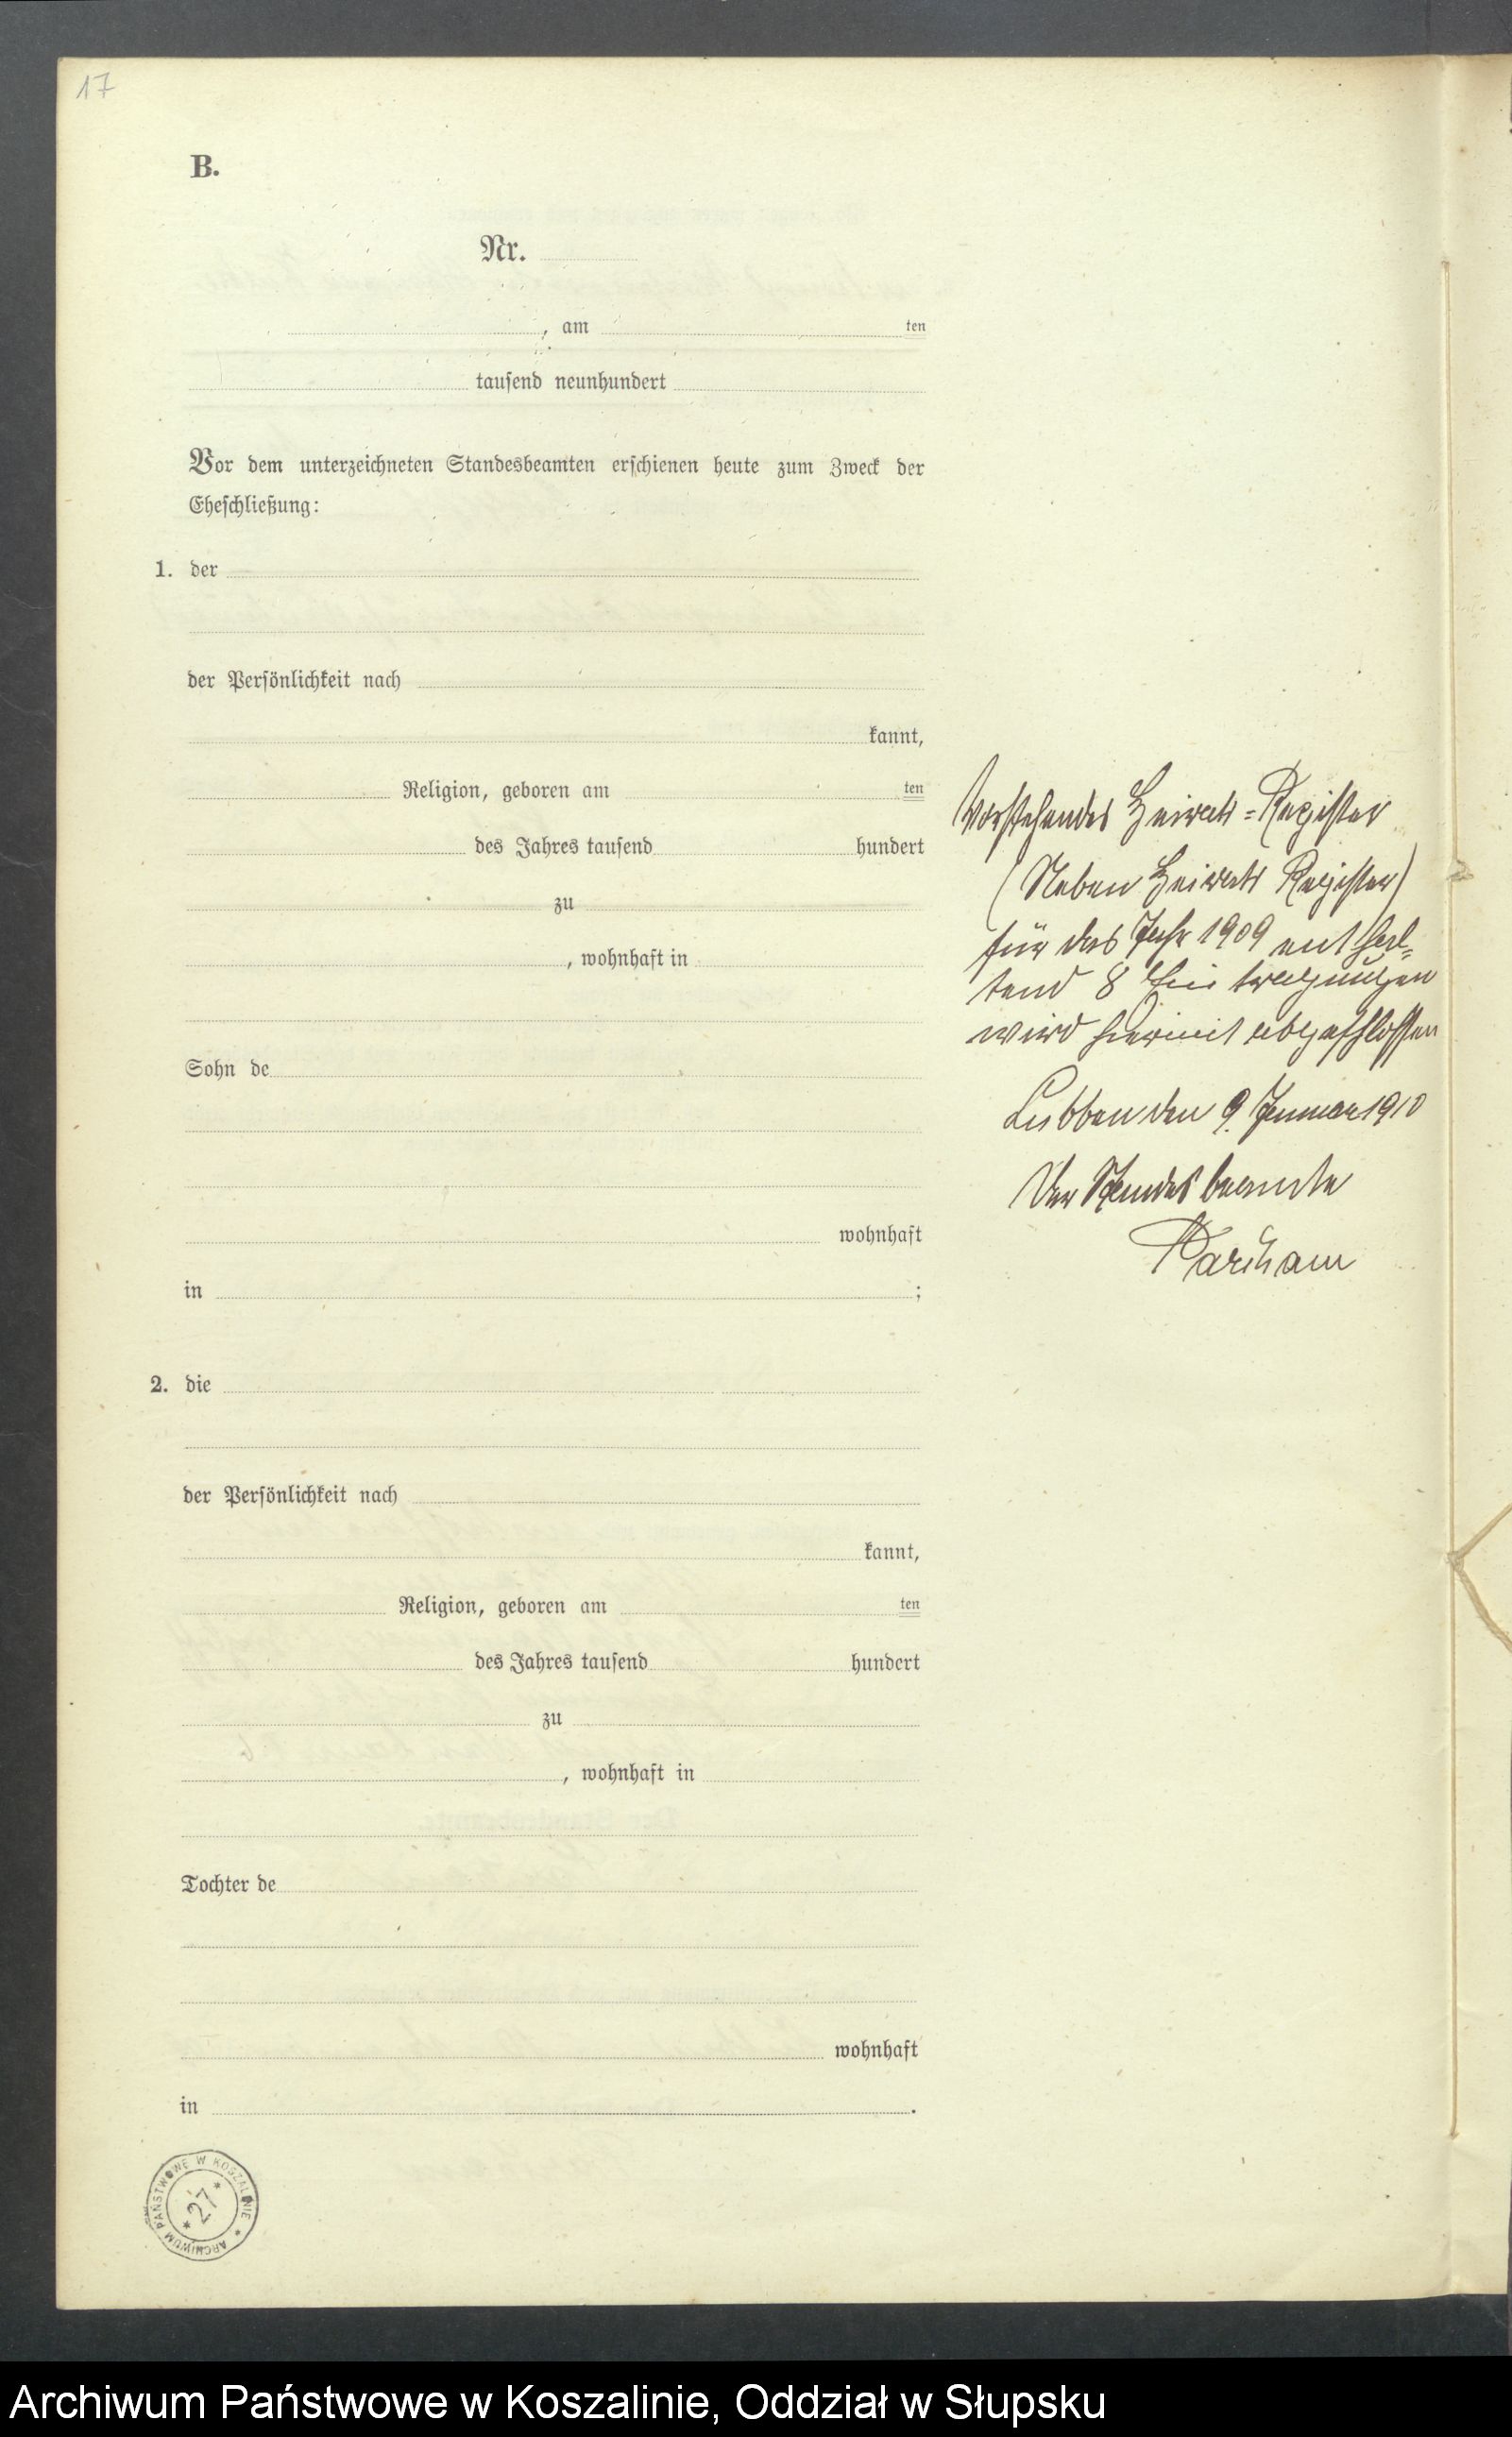 17
B.
Nr.
, am ten
tausend neunhundert
Vor dem unterzeichneten Standesbeamten erschienen heute zum Zweck der
Eheschließung:
1. der
der Persönlichkeit nach
kannt,
Religion, geboren am ten
des Jahres tausend hundert
zu
, wohnhaft in
Sohn de
wohnhaft
in ;
2. die
der Persönlichkeit nach
kannt,
Religion, geboren am ten
des Jahres tausend hundert
zu
, wohnhaft in
Tochter de
wohnhaft
in .
Vorstehendes Heirats=Register
(Neben Heirats Register)
für das Jahr 1909 enthal=
tend 8 Eintragungen
wird hiermit abgeschlossen
Lubben den 9. Januar 1910
Der Standesbeamte
ARCHIWUM PAŃSTWOWE W KOSZALINIE
* 27 *
Archiwum Państwowe w Koszalinie, Oddział w Słupsku